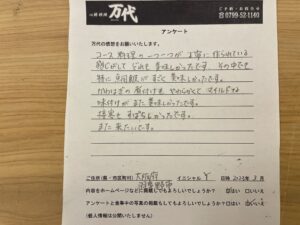 万代
ご予約・お問合せ
☎0799-52-1140
アンケート
万代の感想をお願いいたします。
コース料理の一つ一つが丁寧に作られている
感じがして どれも美味しかったです。その中でも
特に 魚の飯が すごく 美味しかったです。
かわはぎの煮付けも やわらかくて
味付けが また 美味しかったです。
接客も すばらしかったです。
また来たいです。
ご住所(県・市区町村) 大阪府 イニシャル Y 日時 2023年 3月
内容をホームページなどに掲載してもよろしいでしょうか? はい・いいえ
アンケートと食事中の写真の掲載もしてもよろしいでしょうか? はい・いいえ
(個人情報は公開いたしません)